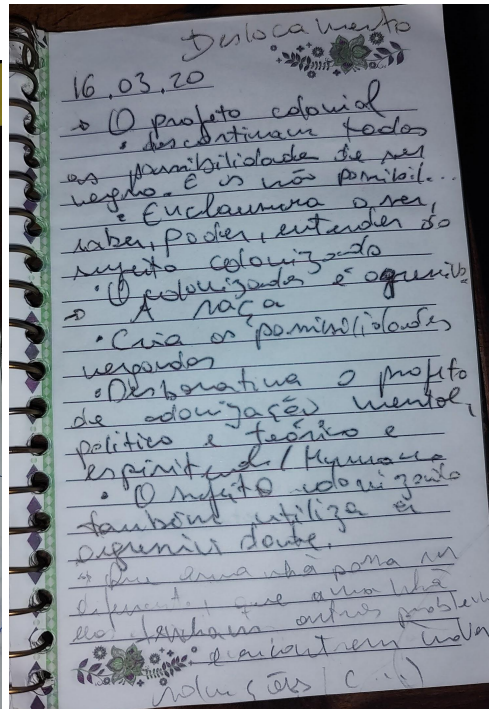 Deslocamento
16.03.20
→ O projeto colonial
• descontinuam todas
as possibilidade de ser
negro. E os não possibil...
• Enclausura o ser,
saber, poder, entender do
sujeito colonizado
• O colonizador é agressivo
→ A raça
• Cria as possibilidades
negadas
• Desbonativa o projeto
de colonização mental,
político e teórico e
espiritual / Humana
• O sujeito colonizado
também utiliza a
agressividade.
→ Que amanhã possa ser
diferente, que amanhã
elas tenham outros problemas
e encontrem novas
soluções (...)